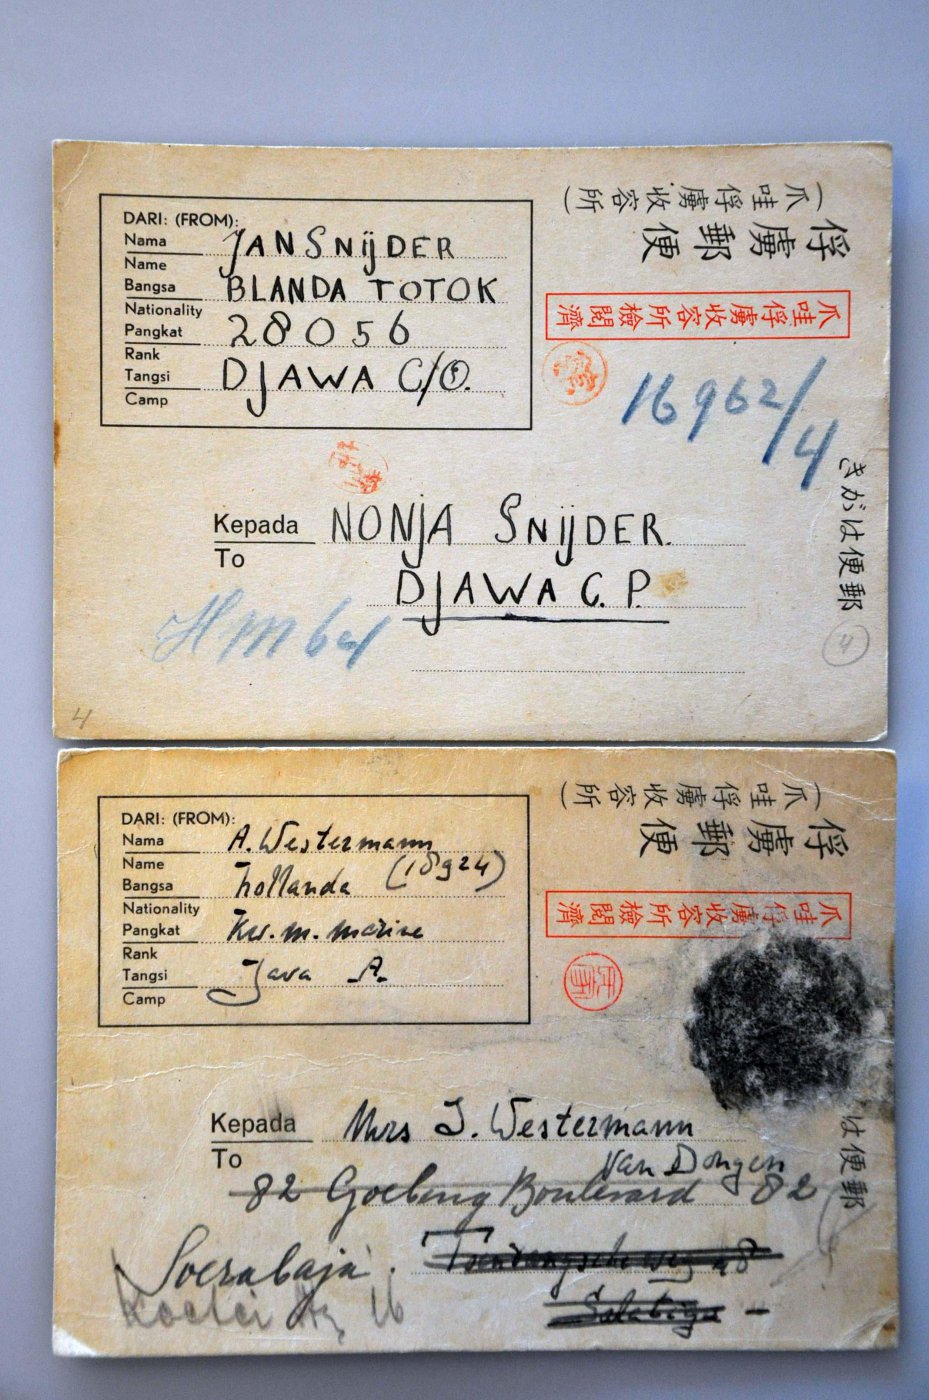 DARI: (FROM):
Nama JAN SNIJDER
Name
Bangsa BLANDA TOTOK
Nationality
Pangkat 28056
Rank
Tangsi DJAWA C/O.
Camp
(爪哇俘虜收容所)
俘虜郵便
爪哇俘虜收容所檢閲濟
16962/4
きがは便郵
4
Kepada NONJA SNIJDER.
To
DJAWA C. P.
4
DARI: (FROM):
Nama A. Westermann
Name (18924)
Bangsa hollanda
Nationality
Pangkat Kw. m. marine
Rank
Tangsi Java A.
Camp
(爪哇俘虜收容所)
俘虜郵便
爪哇俘虜收容所檢閲濟
は便郵
Kepada Mrs J. Westermann
To Van Dongen
82 Goebeng Boulevard 82
Soerabaja.
16